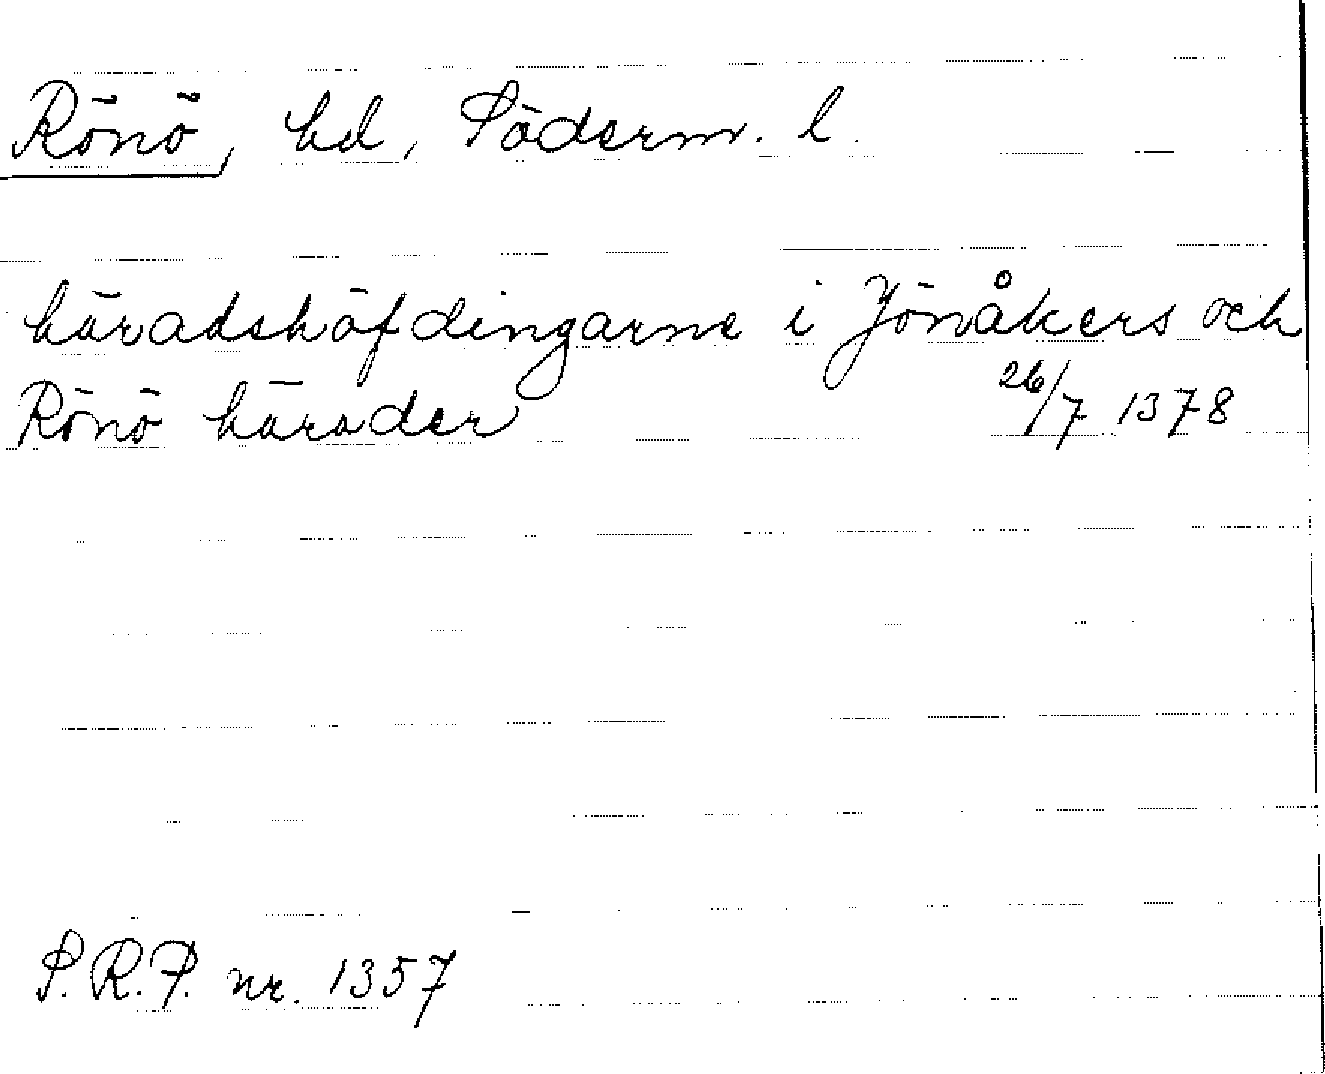 Rönö, hd, Söderm. l.
häradshöfdingarne i Jönåkers och
Rönö härader 26/7 1378
S.R.P. nr. 1357